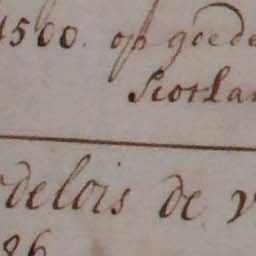 1500. op goede
Scotlan
delois de v
86